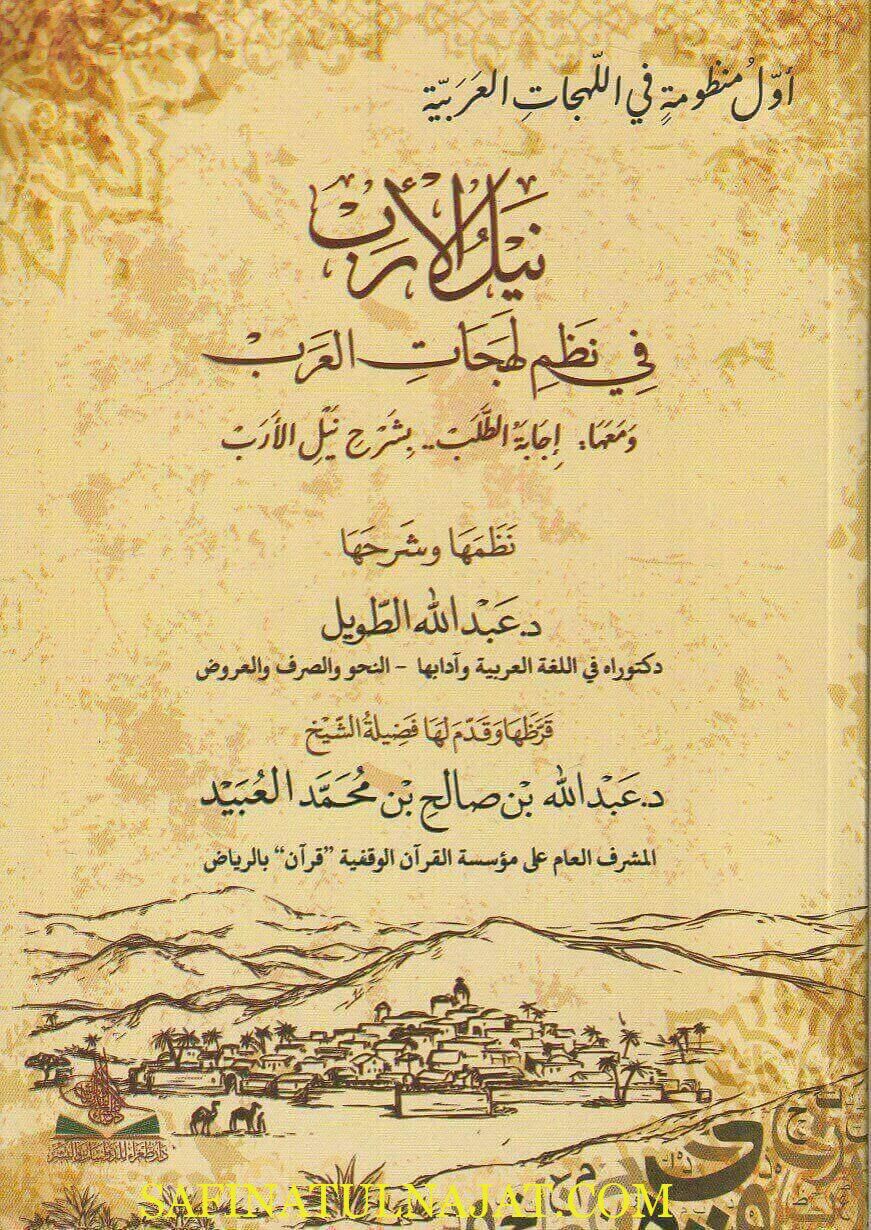 أوّلُ منظومةٍ في اللّهجاتِ العَرَبيّة
نَيْلُ الأَرَبْ
فِي نَظْمِ لَهَجَاتِ العَرَبْ
وَمَعَهَا: إِجَابَةُ الطَّلَبْ.. بِشَرْحِ نَيْلِ الأَرَبْ
نَظَمَهَا وشَرَحَهَا
د. عَبْدالله الطّويل
دكتوراه في اللغة العربية وآدابها - النحو والصرف والعروض
قَرَّظَها وَقَدّمَ لَها فَضِيلةُ الشّيْخ
د. عَبْدالله بْن صالح بْن مُحَمَّد العُبَيْد
المشرف العام على مؤسسة القرآن الوقفية "قرآن" بالرياض
دار طغراء للدراسات والنشر
SAFINATULNAJAT.COM